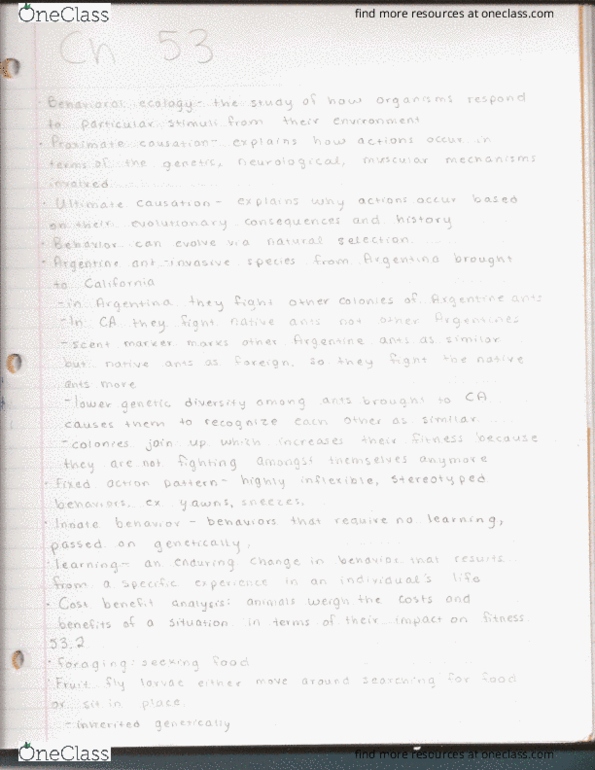 OneClass
find more resources at oneclass.com
Ch 53
· Behavioral ecology- the study of how organisms respond
to particular stimuli from their environment
· Proximate causation- explains how actions occur in
terms of the genetic, neurological, muscular mechanisms
involved.
· Ultimate causation - explains why actions occur based
on their evolutionary consequences and history
· Behavior can evolve via natural selection.
· Argentine ant -invasive species from Argentina brought
to California
-in Argentina they fight other colonies of Argentine ants
-In CA they fight native ants not other Argentines
-scent marker marks other Argentine ants as similar
but native ants as foreign, so they fight the native
ants more
-lower genetic diversity among ants brought to CA
causes them to recognize each other as similar
-colonies join up which increases their fitness because
they are not fighting amongst themselves anymore
· Fixed action pattern- highly inflexible, stereotyped
behaviors, ex yawns, sneezes.
· Innate behavior - behaviors that require no learning,
passed on genetically.
· learning- an enduring change in behavior that results
from a specific experience in an individual's life
· Cost benefit analysis: animals weigh the costs and
benefits of a situation in terms of their impact on fitness
53.2
· Foraging: seeking food
· Fruit fly larvae either move around searching for food
or sit in place.
-inherited genetically
OneClass
find more resources at oneclass.com